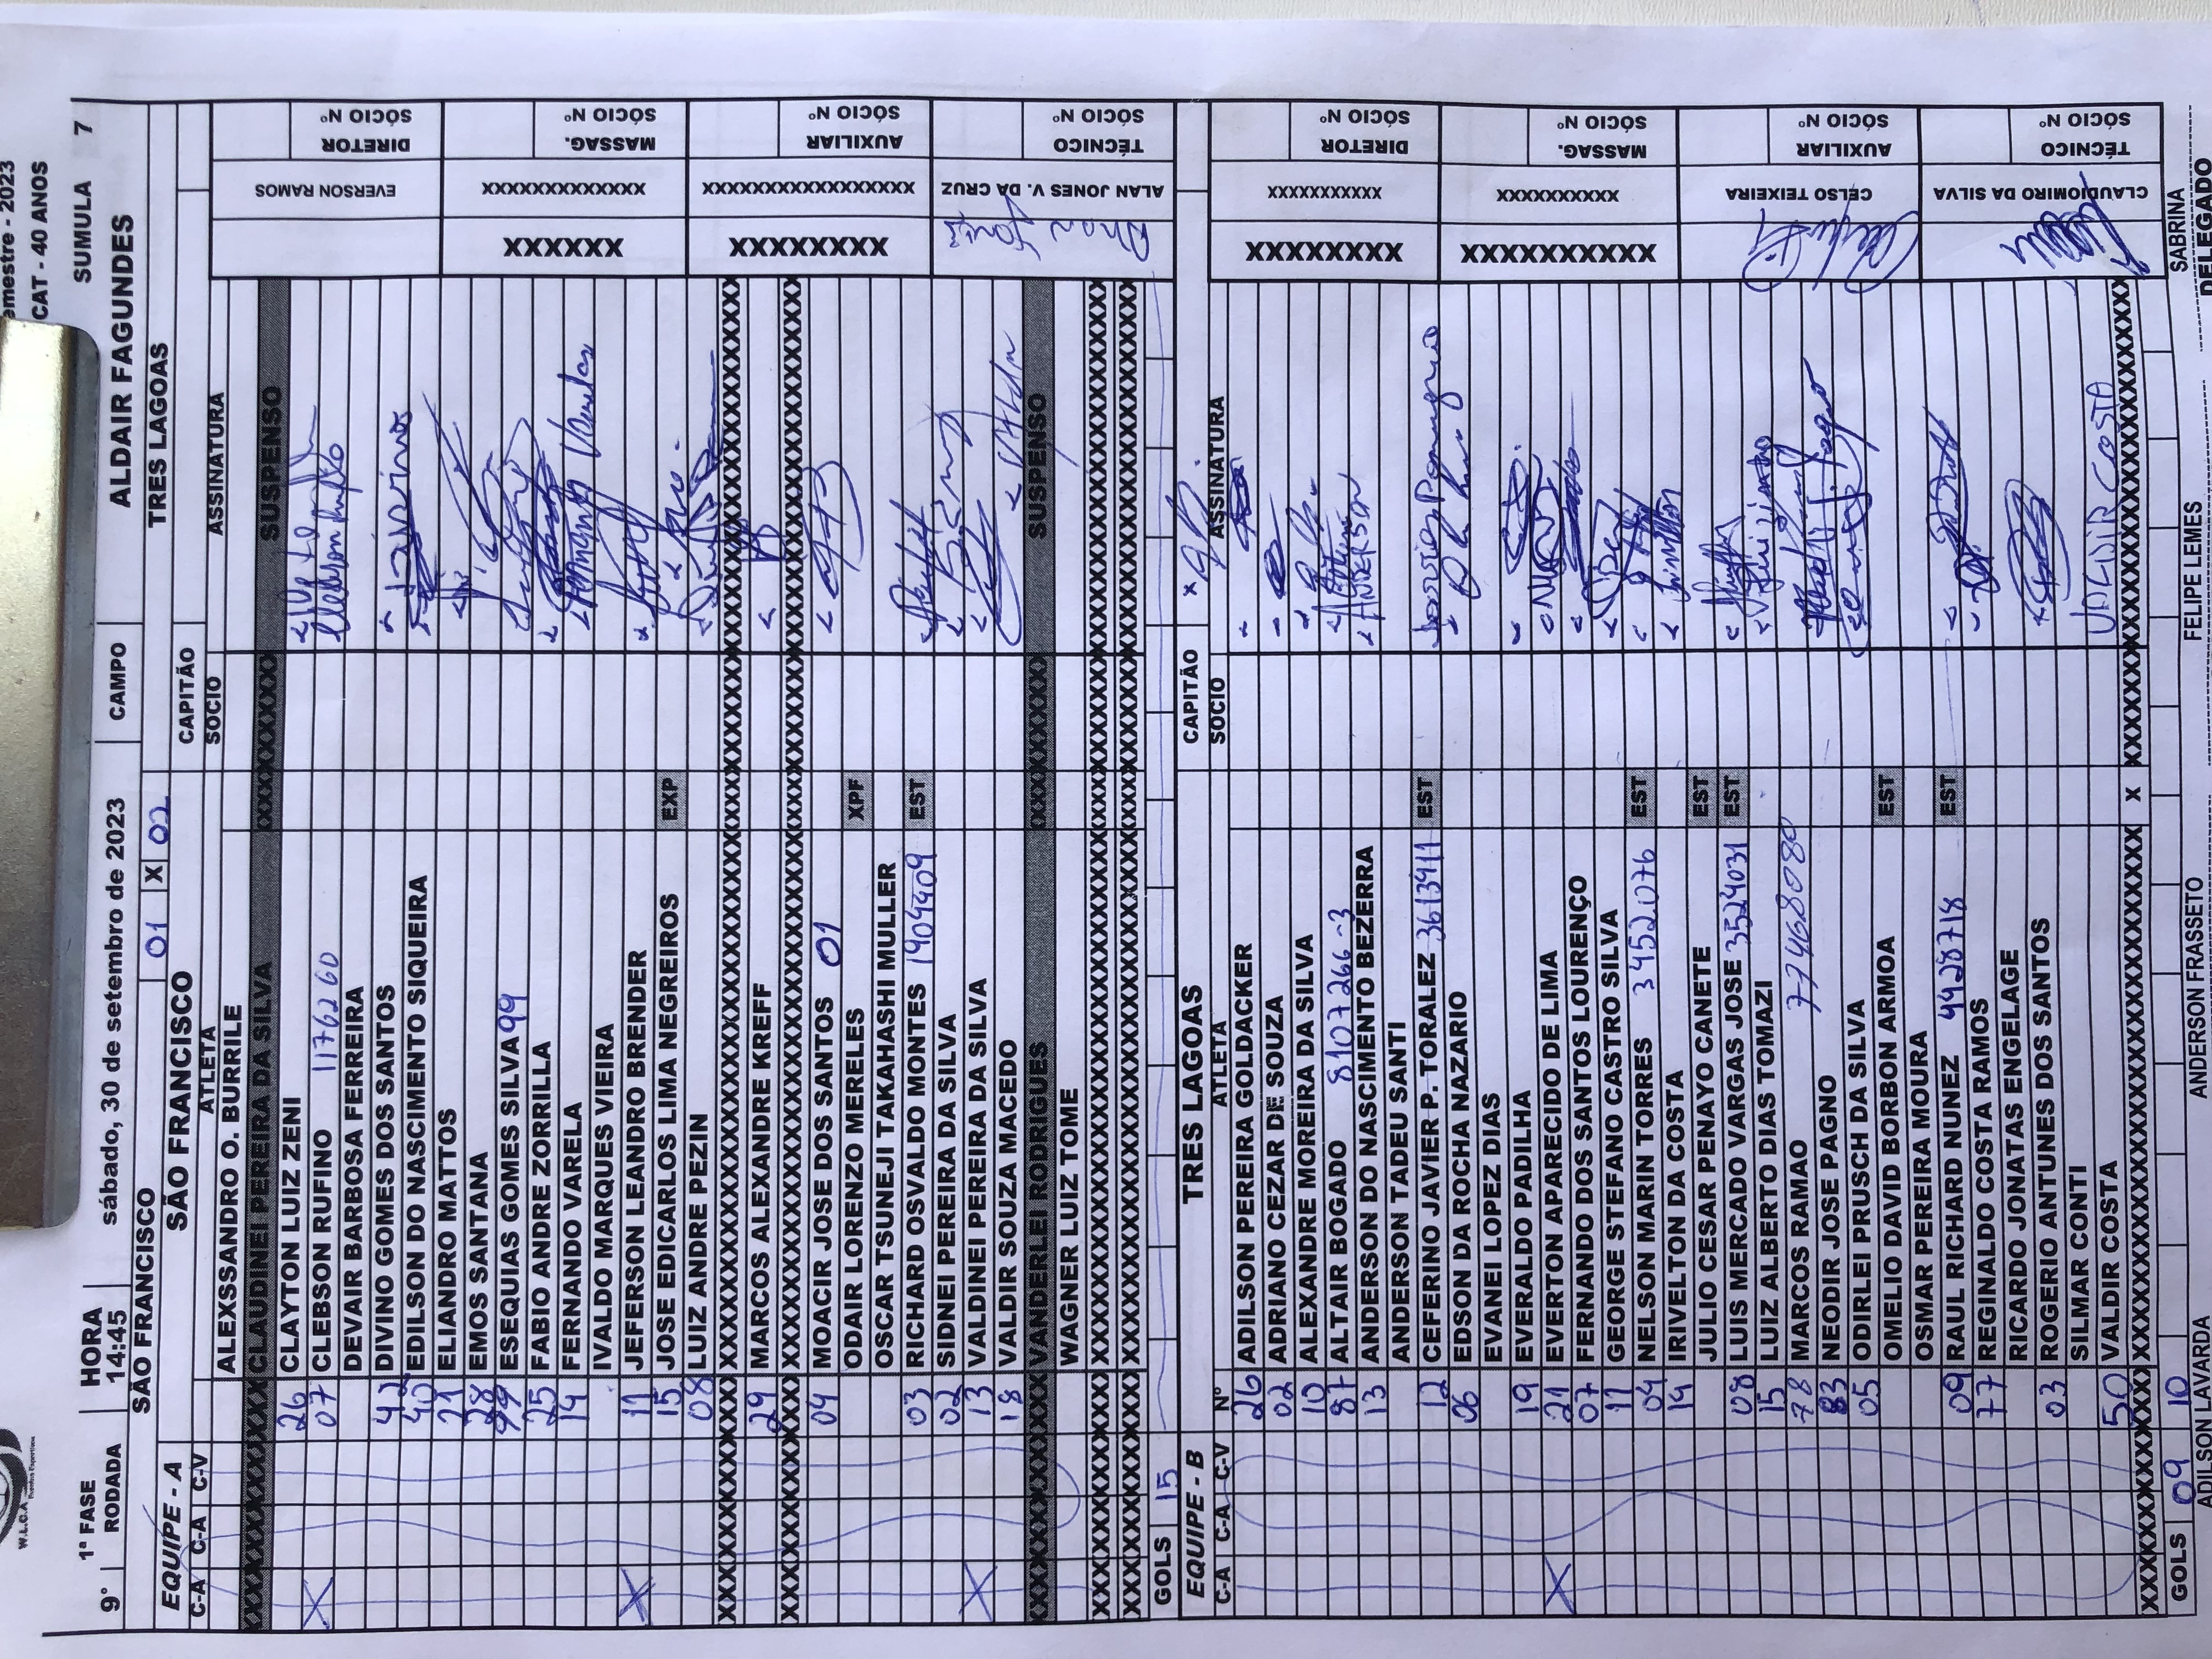 emestre - 2023
CAT - 40 ANOS
W.L.C.A
Eventos Esportivos
9° 1ª FASE RODADA HORA 14:45 sábado, 30 de setembro de 2023 CAMPO ALDAIR FAGUNDES SUMULA 7
SÃO FRANCISCO 01 X 02 TRES LAGOAS
EQUIPE - A SÃO FRANCISCO CAPITÃO
C-A C-A C-V ATLETA SOCIO ASSINATURA
ALEXSSANDRO O. BURRILE
XXXXXXXXXXXX CLAUDINEI PEREIRA DA SILVA XXXXXXXXXX SUSPENSO
26 CLAYTON LUIZ ZENI
X 07 CLEBSON RUFINO 1176260
DEVAIR BARBOSA FERREIRA
42 DIVINO GOMES DOS SANTOS
40 EDILSON DO NASCIMENTO SIQUEIRA
21 ELIANDRO MATTOS
28 EMOS SANTANA
99 ESEQUIAS GOMES SILVA 99
25 FABIO ANDRE ZORRILLA
14 FERNANDO VARELA
IVALDO MARQUES VIEIRA
X 11 JEFERSON LEANDRO BRENDER
15 JOSE EDICARLOS LIMA NEGREIROS EXP
08 LUIZ ANDRE PEZIN
XXXXXXXXXXXXXXXXXXXXXXXXXXXXXXXXXXXXXXXX
29 MARCOS ALEXANDRE KREFF
XXXXXXXXXXXXXXXXXXXXXXXXXXXXXXXXXXXXXXXX
04 MOACIR JOSE DOS SANTOS 01
ODAIR LORENZO MERELES XPF
OSCAR TSUNEJI TAKAHASHI MULLER
03 RICHARD OSVALDO MONTES 1904409 EST
02 SIDNEI PEREIRA DA SILVA
X 13 VALDINEI PEREIRA DA SILVA
18 VALDIR SOUZA MACEDO
XXXXXXXXXXXX VANDERLEI RODRIGUES XXXXXXXXXX SUSPENSO
WAGNER LUIZ TOME
XXXXXXXXXXXXXXXXXXXXXXXXXXXXXXXXXXXXXXXX
XXXXXXXXXXXXXXXXXXXXXXXXXXXXXXXXXXXXXXXX
GOLS 15
EVERSON RAMOS DIRETOR SÓCIO Nº
XXXXXX XXXXXXXXXXXXX MASSAG. SÓCIO Nº
XXXXXXXX XXXXXXXXXXXXXXXXX AUXILIAR SÓCIO Nº
Alan Jones ALAN JONES V. DA CRUZ TÉCNICO SÓCIO Nº
EQUIPE - B TRES LAGOAS CAPITÃO x
C-A C-A C-V Nº ATLETA SOCIO ASSINATURA
26 ADILSON PEREIRA GOLDACKER
02 ADRIANO CEZAR DE SOUZA
10 ALEXANDRE MOREIRA DA SILVA
87 ALTAIR BOGADO 8107266-3
13 ANDERSON DO NASCIMENTO BEZERRA ANDERSON
ANDERSON TADEU SANTI
12 CEFERINO JAVIER P. TORALEZ 3613411 EST
06 EDSON DA ROCHA NAZARIO
EVANEI LOPEZ DIAS
19 EVERALDO PADILHA
X 21 EVERTON APARECIDO DE LIMA
07 FERNANDO DOS SANTOS LOURENÇO
11 GEORGE STEFANO CASTRO SILVA
04 NELSON MARIN TORRES 3452076 EST
14 IRIVELTON DA COSTA
JULIO CESAR PENAYO CANETE EST
08 LUIS MERCADO VARGAS JOSE 3524031 EST
15 LUIZ ALBERTO DIAS TOMAZI
78 MARCOS RAMAO 77468080
83 NEODIR JOSE PAGNO
05 ODIRLEI PRUSCH DA SILVA
OMELIO DAVID BORBON ARMOA EST
OSMAR PEREIRA MOURA
09 RAUL RICHARD NUNEZ 4428718 EST
77 REGINALDO COSTA RAMOS
RICARDO JONATAS ENGELAGE
03 ROGERIO ANTUNES DOS SANTOS
SILMAR CONTI
50 VALDIR COSTA VALDIR COSTA
XXXXXXXXXXXXXXXXXXXXXXXXXXXX X XXXXXXXXXXXXXXXXXXXXXXXX
GOLS 09 10
XXXXXXXX XXXXXXXXXXX DIRETOR SÓCIO Nº
XXXXXXXXXX XXXXXXXXXX MASSAG. SÓCIO Nº
CELSO TEIXEIRA AUXILIAR SÓCIO Nº
CLAUDIOMIRO DA SILVA TÉCNICO SÓCIO Nº
ADILSON LAVARDA ANDERSON FRASSETO FELIPE LEMES SABRINA
DELEGADO